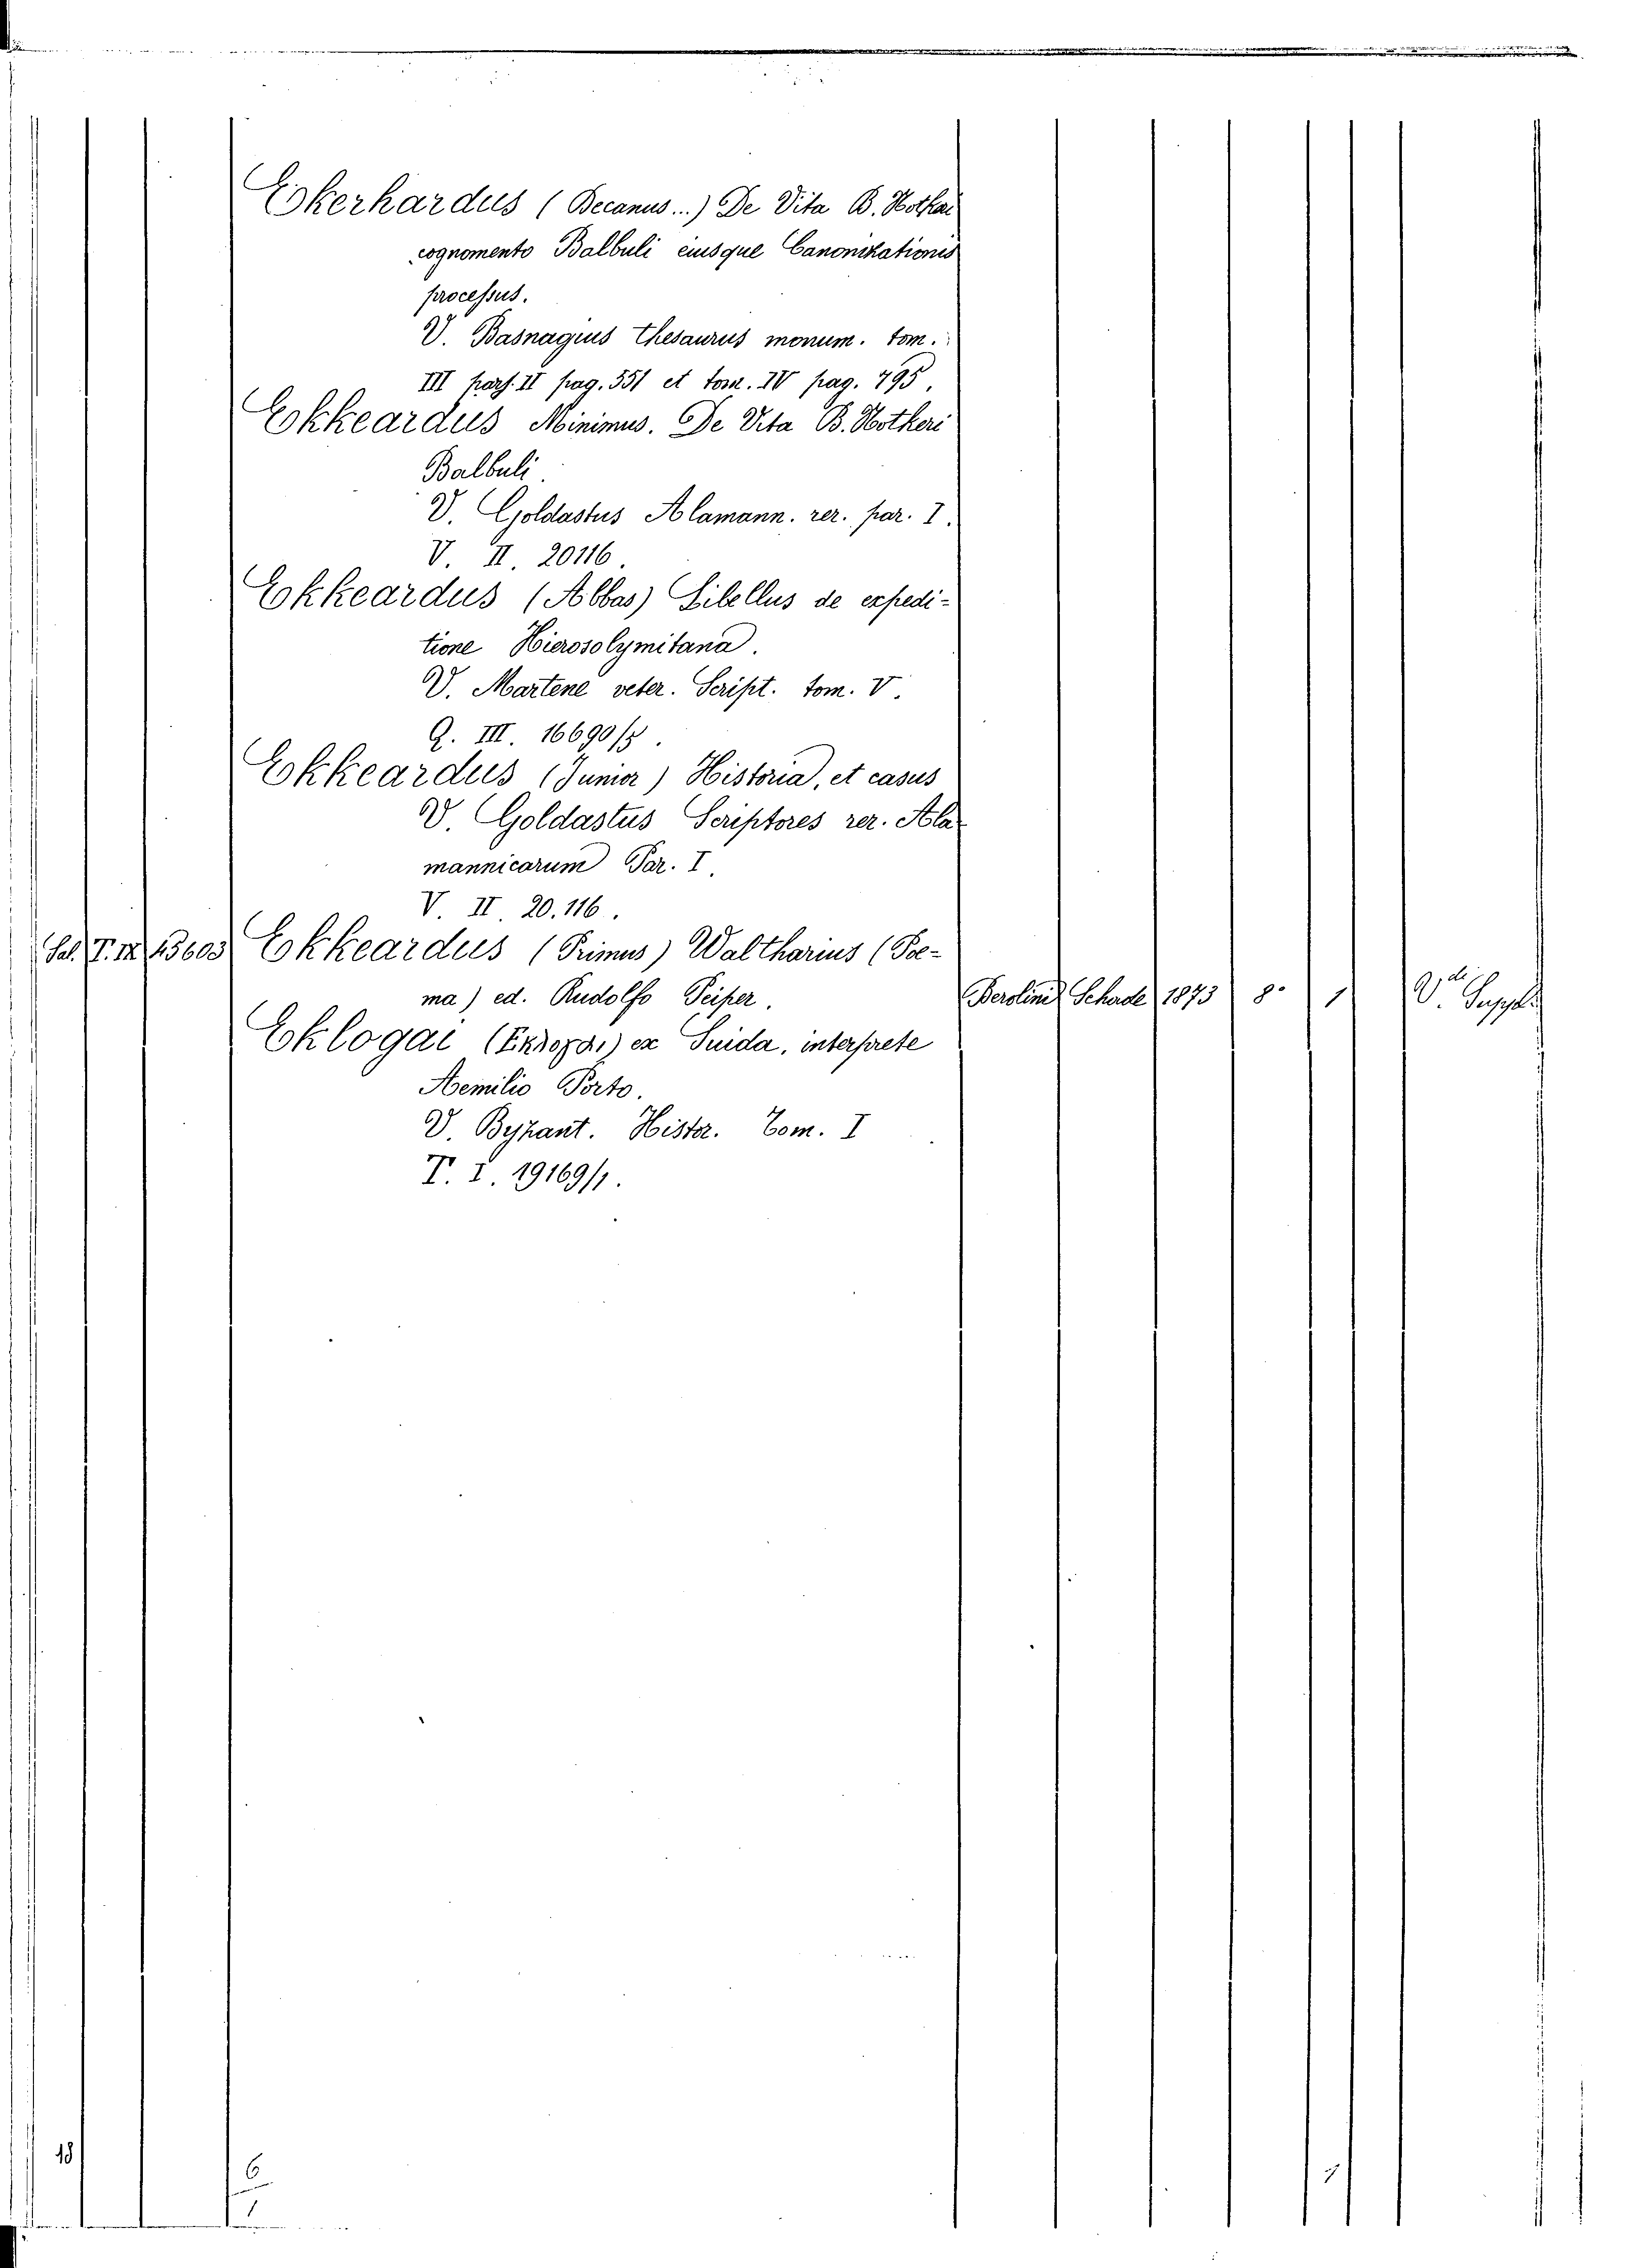 Ekkerhardus (Decanus...) De Vita B. Notkeri
cognomento Balbuli eiusque Canonizationis
processus.
V. Basnagius thesaurus monum. tom.
III pars. II pag. 551 et tom. IV pag. 795.
Ekkeardus Minimus. De Vita B. Notkeri
Balbuli.
V. Goldastus Alamann. rer. par. I.
V. II. 20116.
Ekkeardus (Abbas) Libellus de expedi-
tione Hierosolymitana.
V. Martene veter. Script. tom. V.
Q. III. 16690/5.
Ekkeardus (Junior) Historia, et casus
V. Goldastus Scriptores rer. Ala
mannicarum Par. I.
V. II. 20.116.
Sal. T. IX 43603 Ekkeardus (Primus) Waltharius (Poe-
ma) ed. Rudolfo Peiper. Berolini 1873 8° 1 V. di Suppl.
Eklogai (Εκλογαι) ex Suida, interprete
Aemilio Porto.
V. Byzant. Histor. Tom. I
T. I. 19169/1.
18
6
1